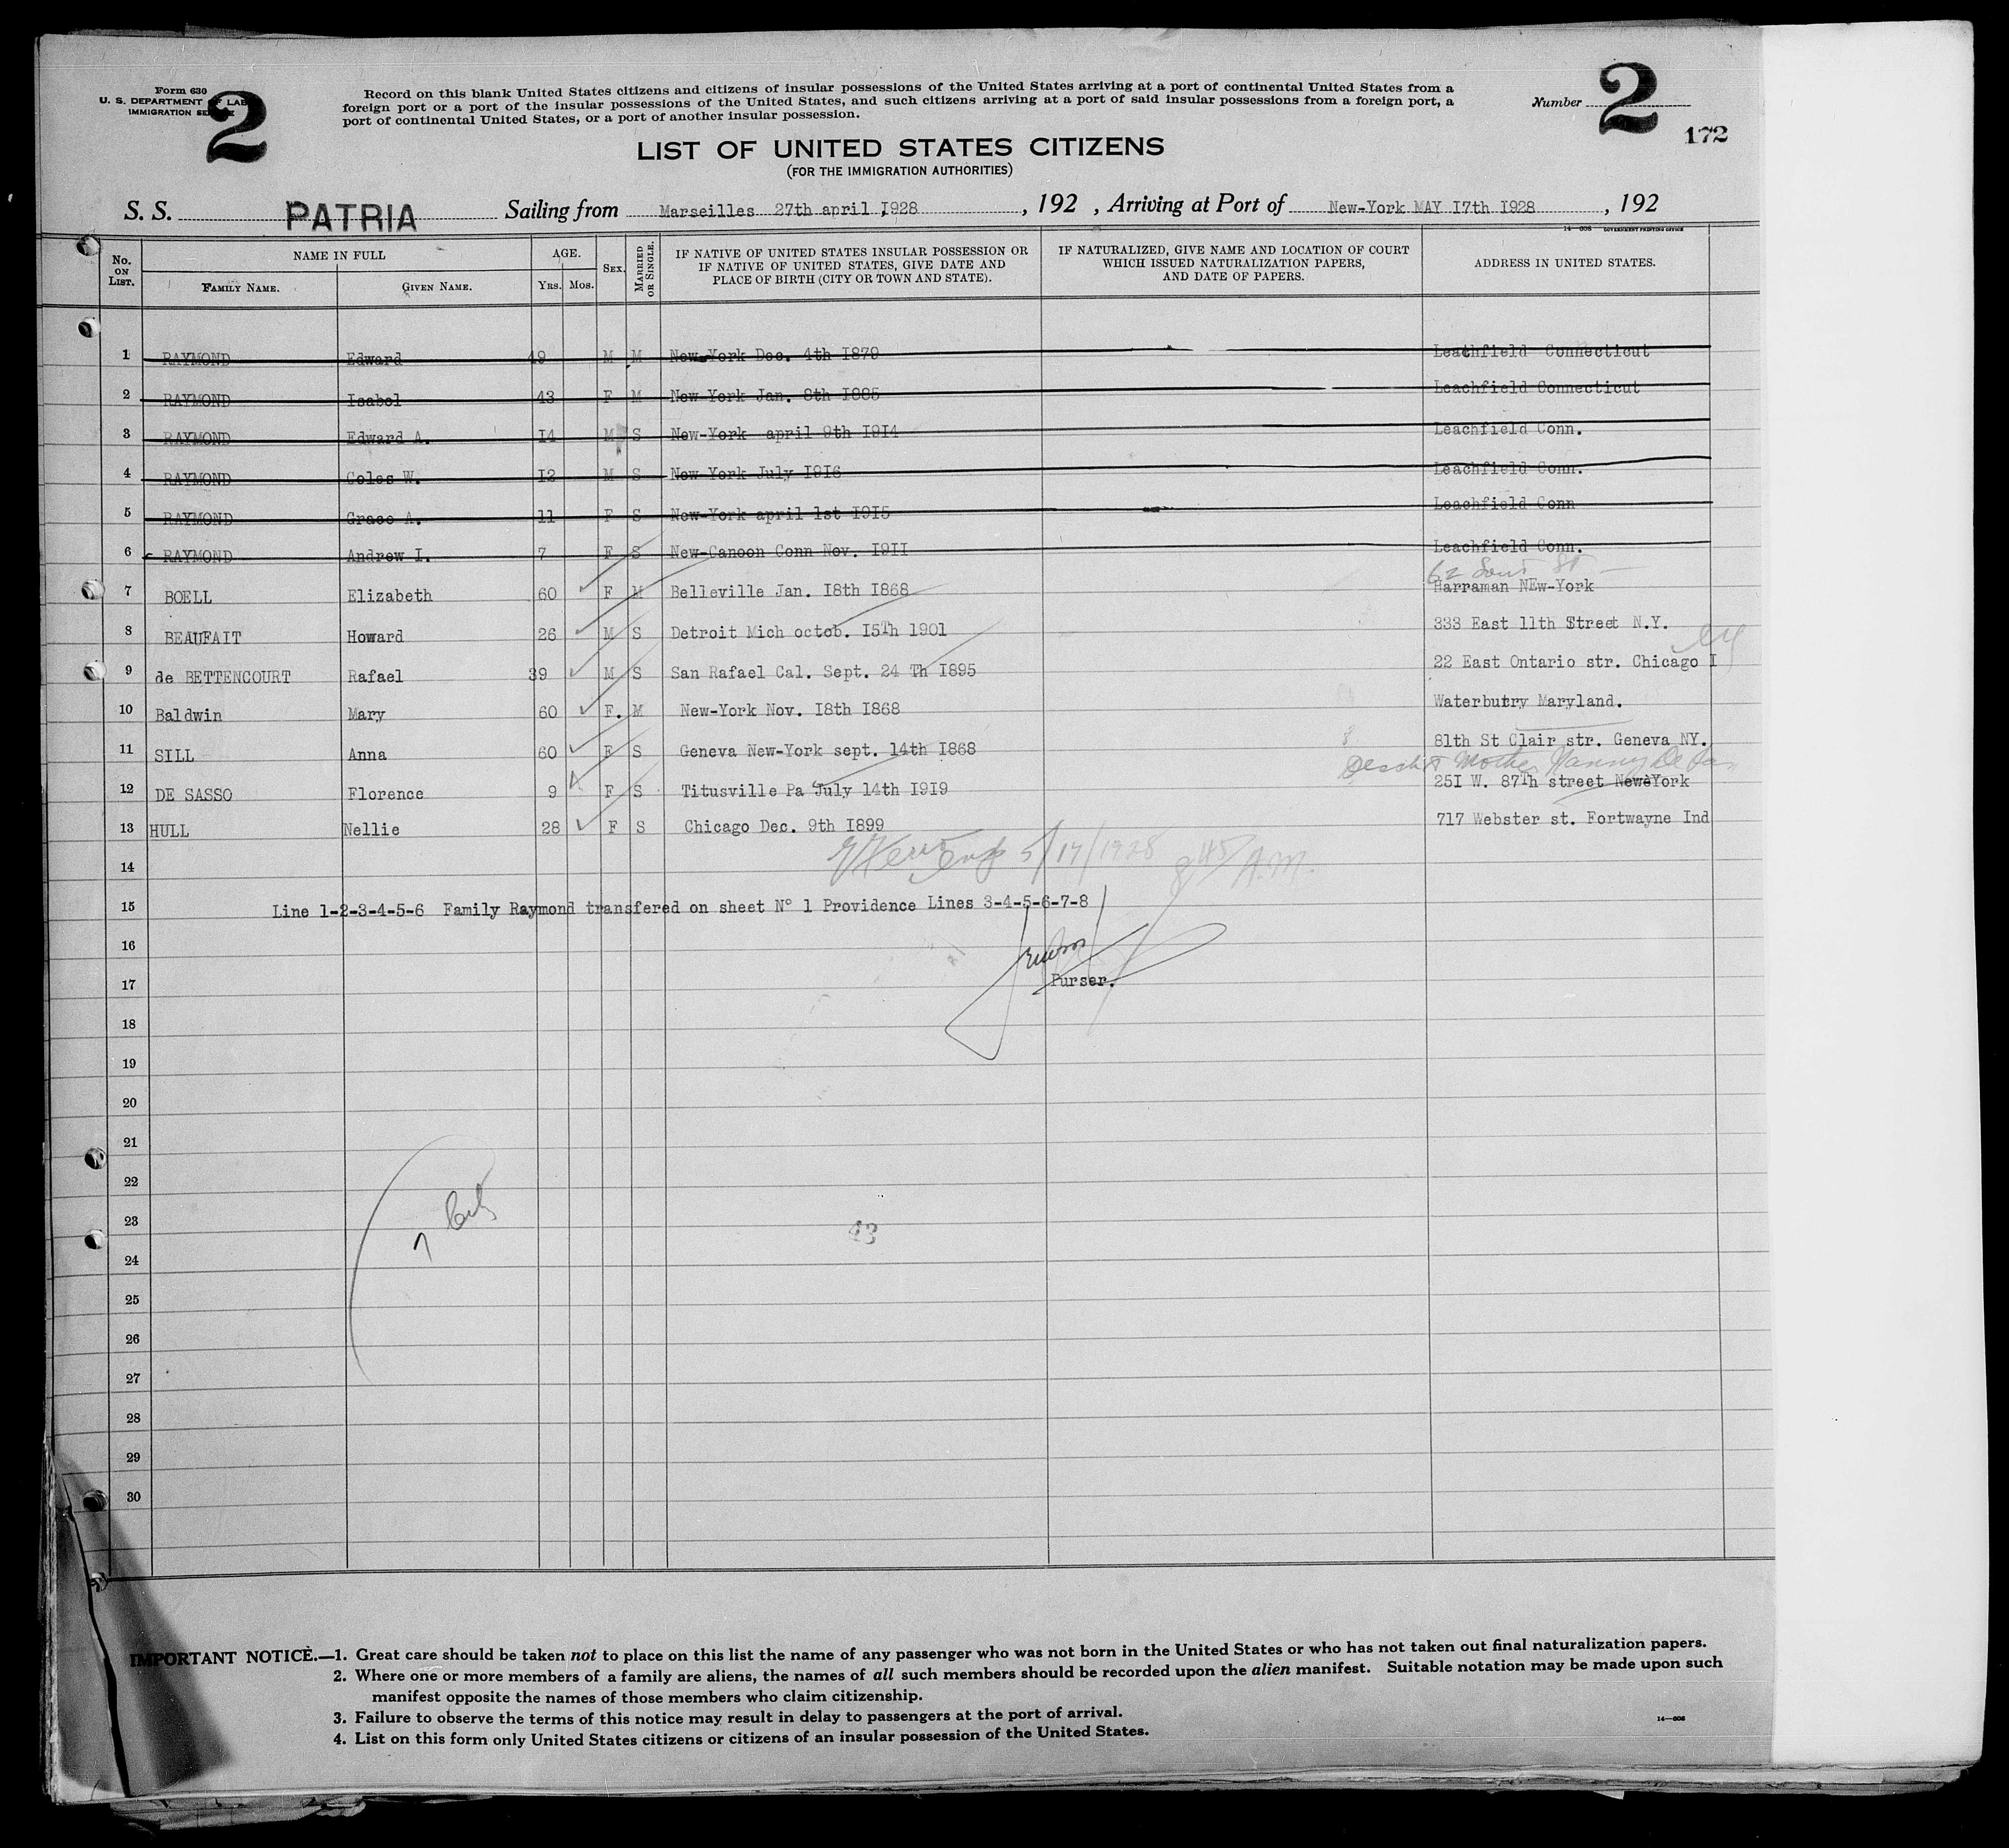 Form 630
U. S. DEPARTMENT OF LAB
IMMIGRATION SE
2
Record on this blank United States citizens and citizens of insular possessions of the United States arriving at a port of continental United States from a
foreign port or a port of the insular possessions of the United States, and such citizens arriving at a port of said insular possessions from a foreign port, a
port of continental United States, or a port of another insular possession.
Number 2
172
LIST OF UNITED STATES CITIZENS
(FOR THE IMMIGRATION AUTHORITIES)
S. S. PATRIA Sailing from Marseilles 27th april 1928, 192 , Arriving at Port of New-York MAY 17th 1928, 192
14—608 GOVERNMENT PRINTING OFFICE
No. ON LIST. NAME IN FULL FAMILY NAME. GIVEN NAME. AGE. YRS. MOS. SEX. MARRIED OR SINGLE. IF NATIVE OF UNITED STATES INSULAR POSSESSION OR IF NATIVE OF UNITED STATES, GIVE DATE AND PLACE OF BIRTH (CITY OR TOWN AND STATE). IF NATURALIZED, GIVE NAME AND LOCATION OF COURT WHICH ISSUED NATURALIZATION PAPERS, AND DATE OF PAPERS. ADDRESS IN UNITED STATES.
1 RAYMOND Edward 49 M M New-York Dec. 4th 1879 Leachfield Connecticut
2 RAYMOND Isabel 43 F M New York Jan. 8th 1885 Leachfield Connecticut
3 RAYMOND Edward A. 14 M S New-York april 9th 1914 Leachfield Conn.
4 RAYMOND Coles W. 12 M S New York July 1916 Leachfield Conn.
5 RAYMOND Grace A. 11 F S New-York april 1st 1915 Leachfield Conn
6 RAYMOND Andrew I. 7 F S New-Canoon Conn Nov. 1911 Leachfield Conn.
62 St
7 BOELL Elizabeth 60 F M Belleville Jan. 18th 1868 Harraman NEw-York
8 BEAUFAIT Howard 26 M S Detroit Mich octob. 15Th 1901 333 East 11th Street N.Y.
9 de BETTENCOURT Rafael 39 M S San Rafael Cal. Sept. 24 Th 1895 22 East Ontario str. Chicago I
10 Baldwin Mary 60 F. M New-York Nov. 18th 1868 Waterbutry Maryland.
11 SILL Anna 60 F S Geneva New-York sept. 14th 1868 81th St Clair str. Geneva NY.
Mother Nanny De
12 DE SASSO Florence 9 F S Titusville Pa July 14th 1919 251 W. 87Th street NeweYork
13 HULL Nellie 28 F S Chicago Dec. 9th 1899 717 Webster st. Fortwayne Ind
14 5/17/1928 8 45/ A.M.
15 Line 1-2-3-4-5-6 Family Raymond transfered on sheet N° 1 Providence Lines 3-4-5-6-7-8
16
17 Purser.
18
19
20
21
22
23 43
24
25
26
27
28
29
30
IMPORTANT NOTICE.—1. Great care should be taken not to place on this list the name of any passenger who was not born in the United States or who has not taken out final naturalization papers.
2. Where one or more members of a family are aliens, the names of all such members should be recorded upon the alien manifest. Suitable notation may be made upon such
manifest opposite the names of those members who claim citizenship.
3. Failure to observe the terms of this notice may result in delay to passengers at the port of arrival.
4. List on this form only United States citizens or citizens of an insular possession of the United States.
14—608